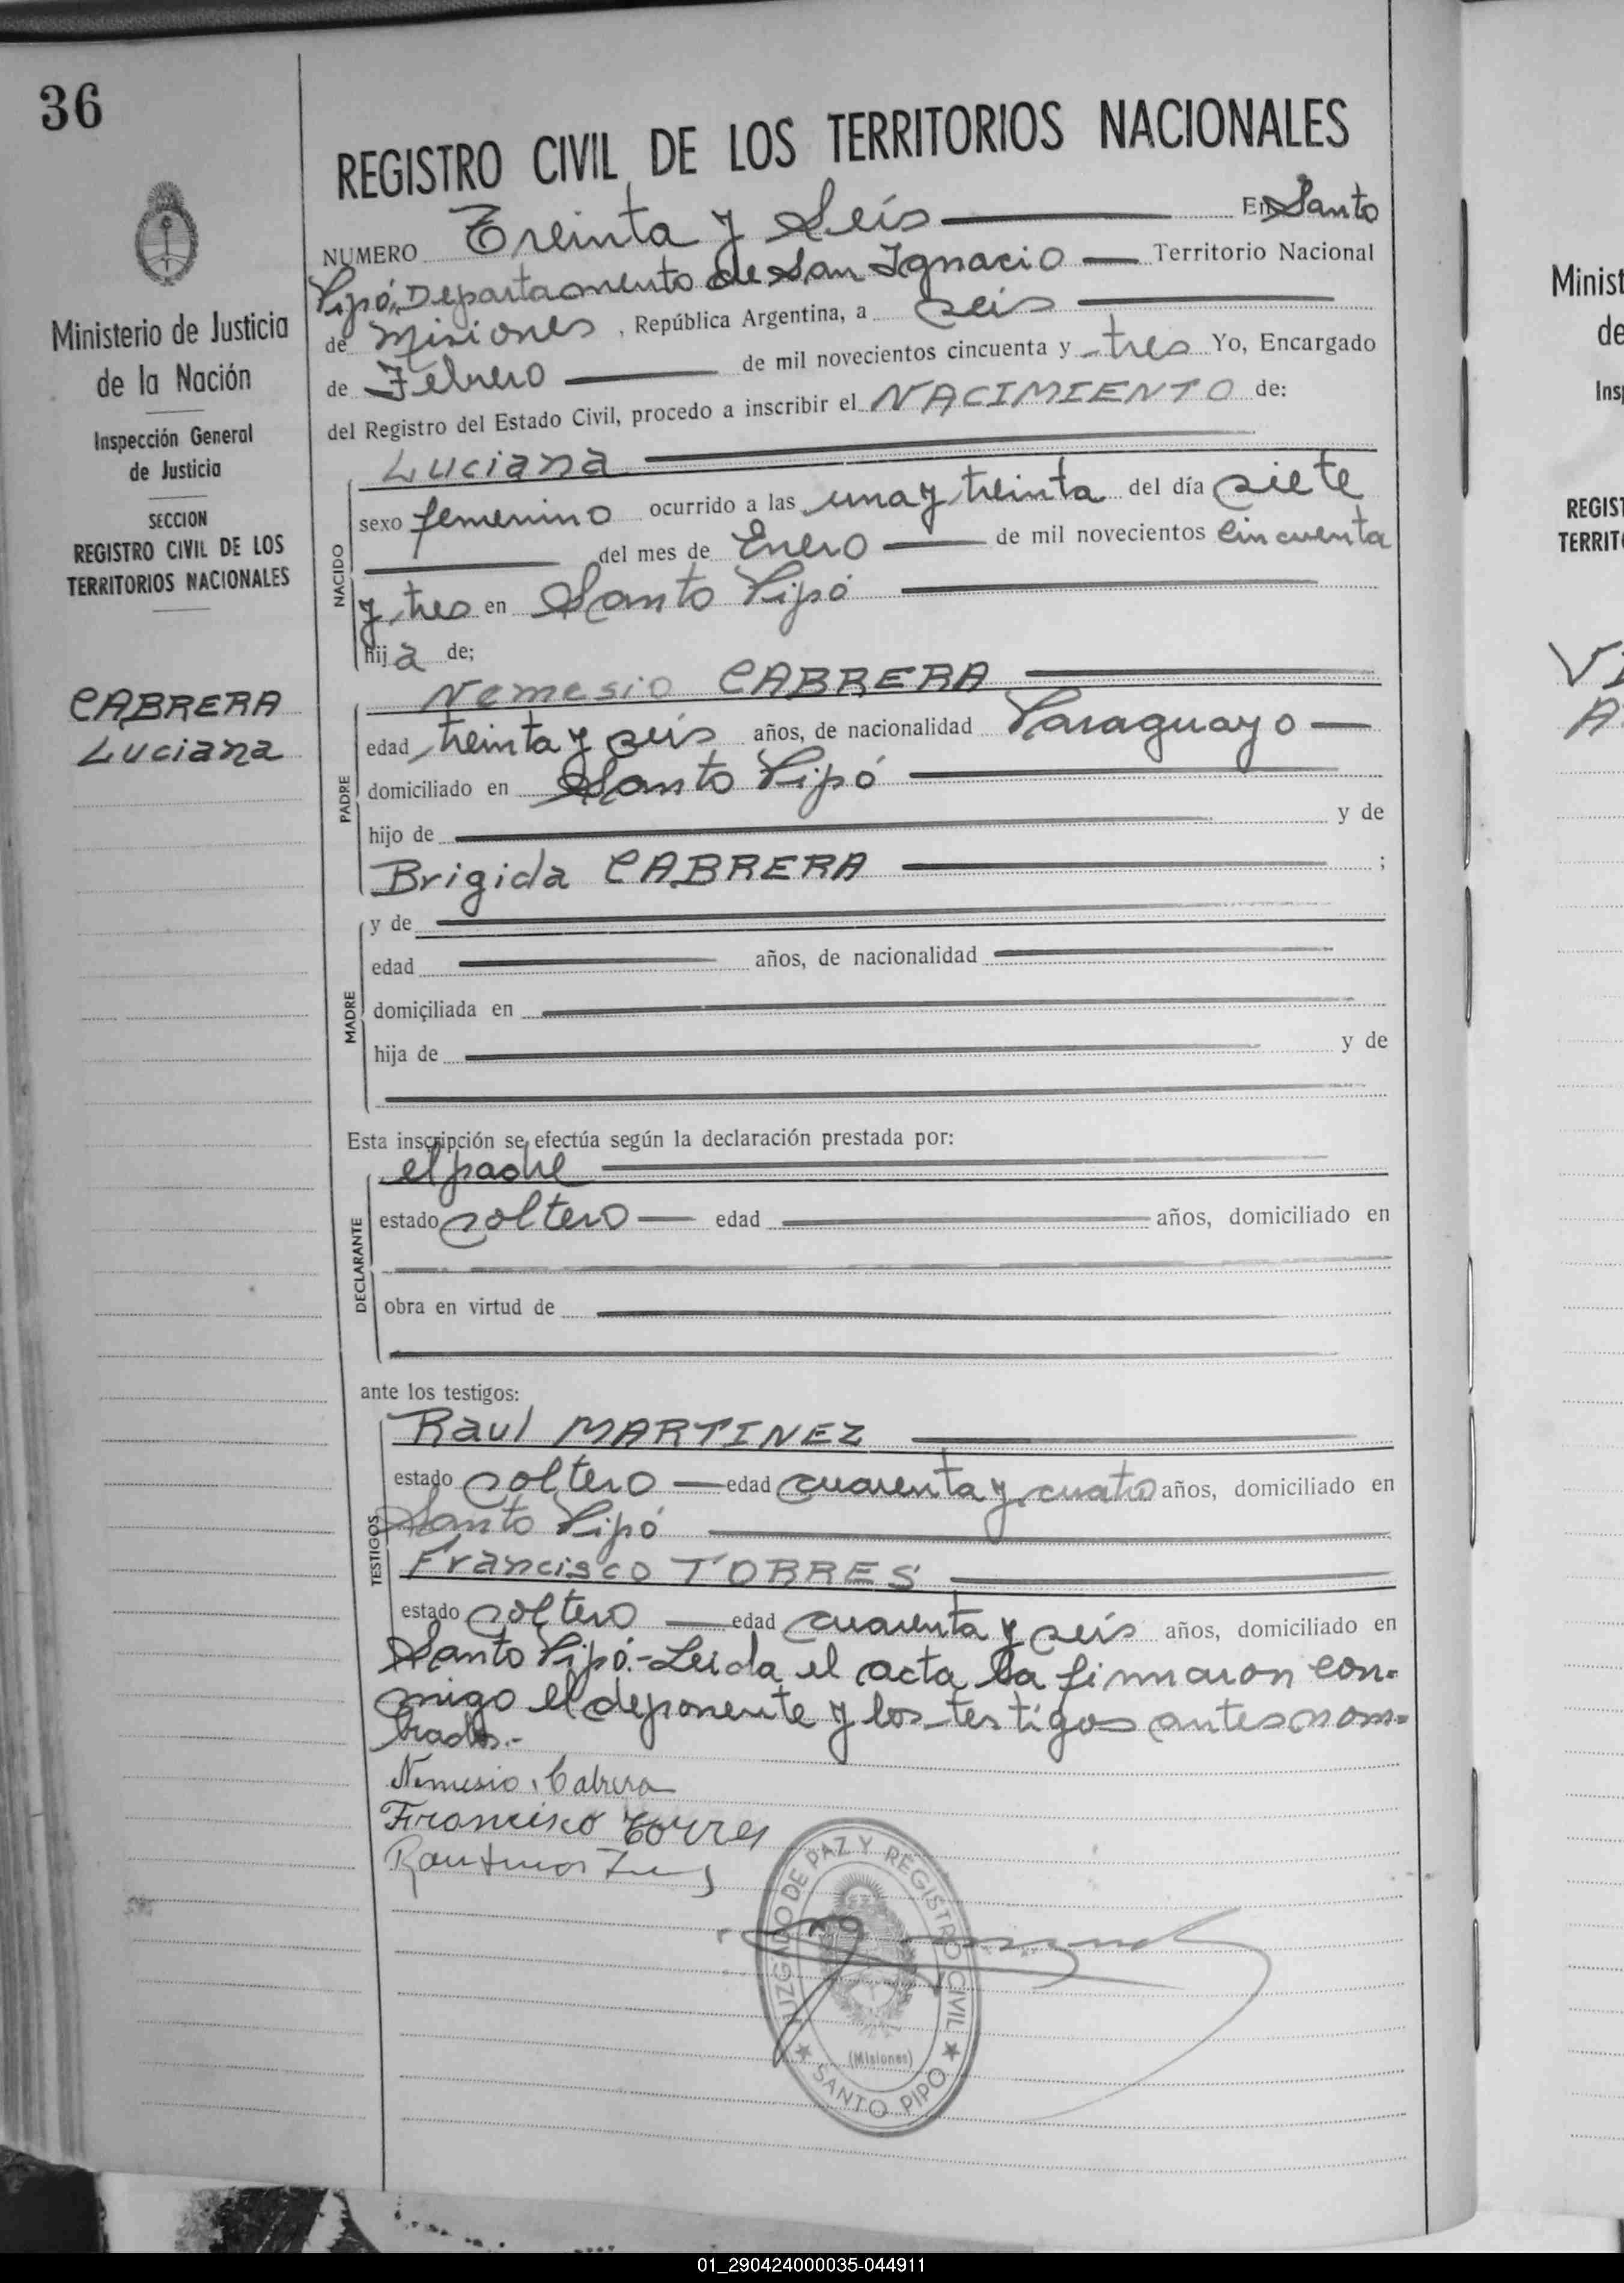 36
REGISTRO CIVIL DE LOS TERRITORIOS NACIONALES
NUMERO Treinta y Seis En Santo
Pipó, Departaomento de San Ignacio Territorio Nacional
de Misiones, República Argentina, a seis
de Febrero de mil novecientos cincuenta y tres Yo, Encargado
del Registro del Estado Civil, procedo a inscribir el NACIMIENTO de:
Luciana
sexo femenino ocurrido a las una y treinta del día siete
del mes de Enero de mil novecientos cincuenta
y tres en Santo Pipó
hija de;
NACIDO
Nemesio CABRERA
edad treinta y seis años, de nacionalidad Paraguayo
domiciliado en Santo Pipó
hijo de y de
Brigida CABRERA ;
PADRE
y de
edad años, de nacionalidad
domiciliada en
hija de y de
MADRE
Esta inscripción se efectúa según la declaración prestada por:
el padre
estado soltero edad años, domiciliado en
obra en virtud de
DECLARANTE
ante los testigos:
Raul MARTINEZ
estado soltero edad cuarenta y cuatro años, domiciliado en
Santo Pipó
Francisco TORRES
estado soltero edad cuarenta y seis años, domiciliado en
TESTIGOS
Santo Pipó.- Leida el acta la firmaron con-
migo el deponente y los testigos antes nom=
brados.-
Nemesio Cabrera
Francisco Torres
JUZGADO DE PAZ Y REGISTRO CIVIL
(Misiones)
SANTO PIPO
Ministerio de Justicia
de la Nación
Inspección General
de Justicia
SECCION
REGISTRO CIVIL DE LOS
TERRITORIOS NACIONALES
CABRERA
Luciana
Minist
de
Insp
REGIST
TERRIT
01_290424000035-044911